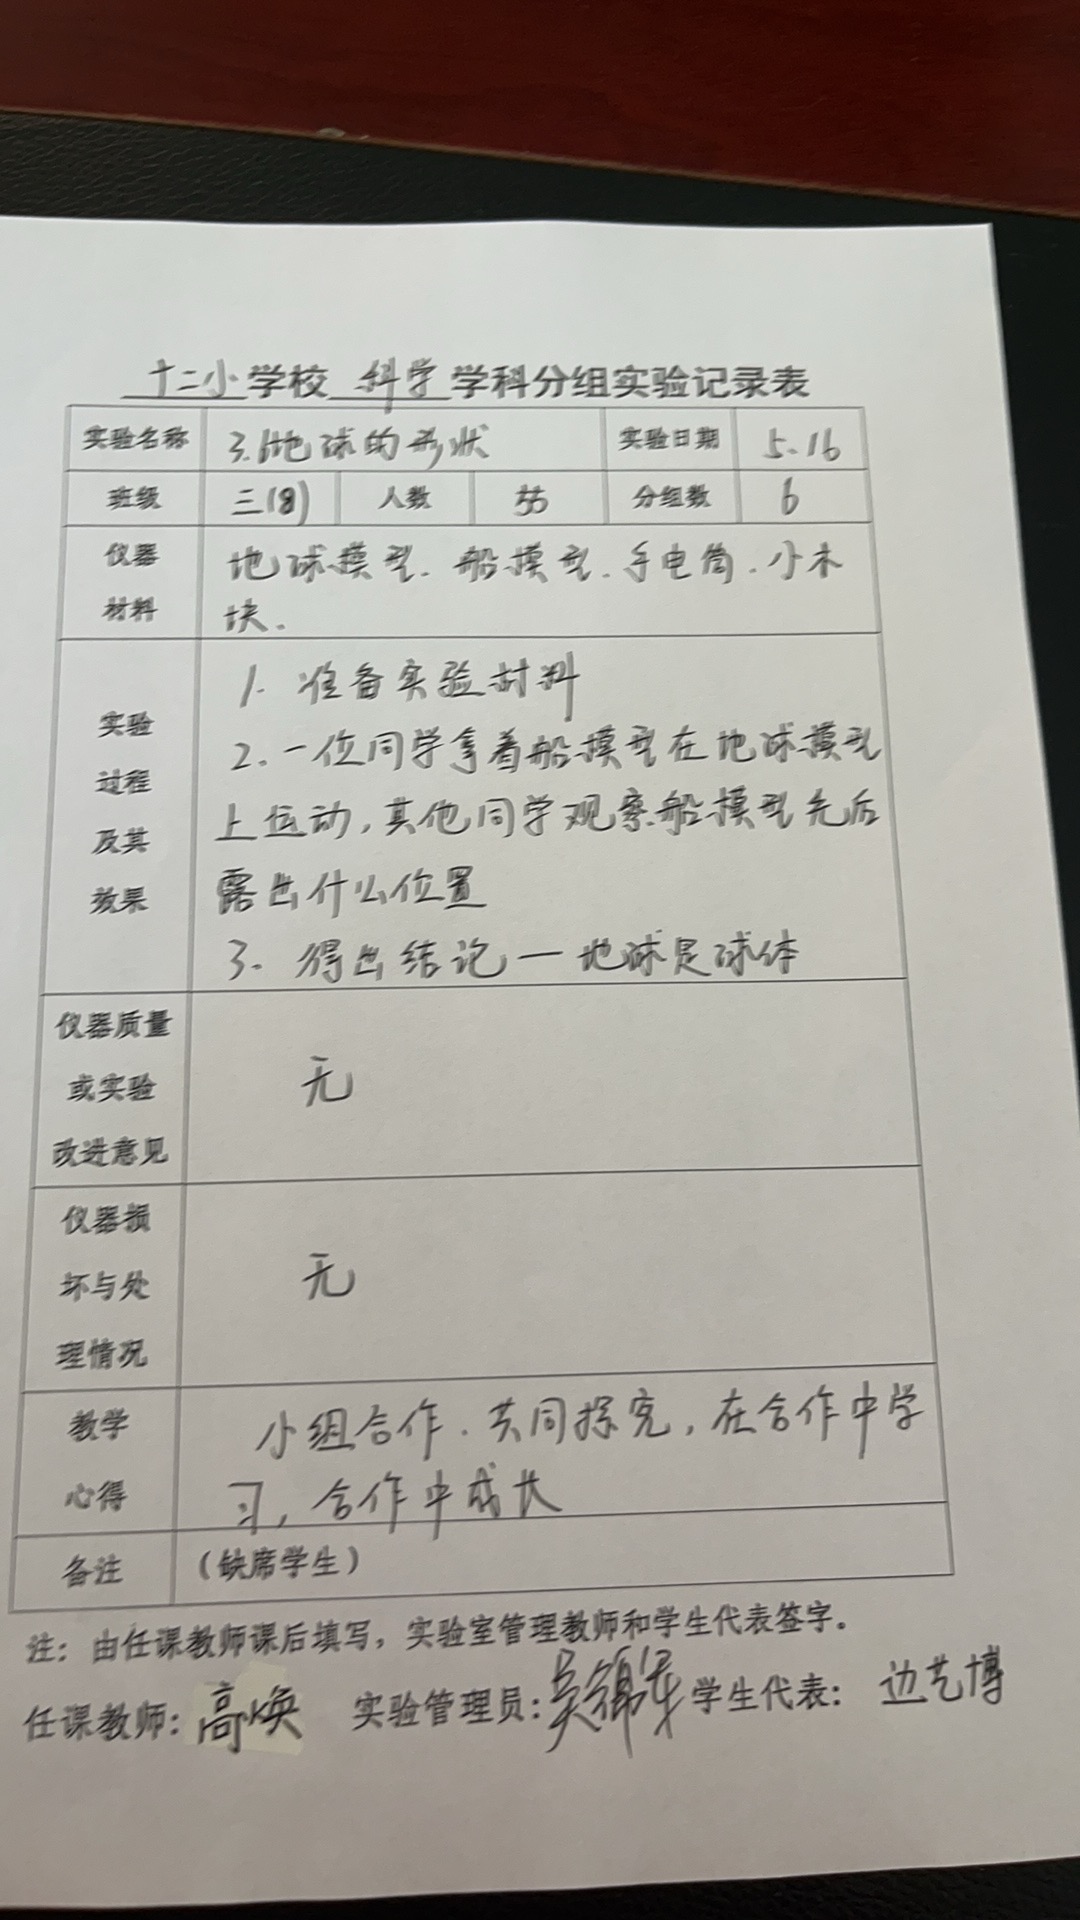 十二小学校 科学学科分组实验记录表
实验名称 3.1地球的形状 实验日期 5.16
班级 三(8) 人数 55 分组数 6
仪器材料 地球模型、船模型、手电筒、小木
块.
实验过程及其效果
1. 准备实验材料
2. 一位同学拿着船模型在地球模型
上运动,其他同学观察船模型先后
露出什么位置
3. 得出结论—地球是球体
仪器质量或实验改进意见 无
仪器损坏与处理情况 无
教学心得 小组合作.共同探究,在合作中学
习,合作中成长
备注 (缺席学生)
注:由任课教师课后填写,实验室管理教师和学生代表签字。
任课教师:高焕 实验管理员:吴锦 学生代表:边艺博